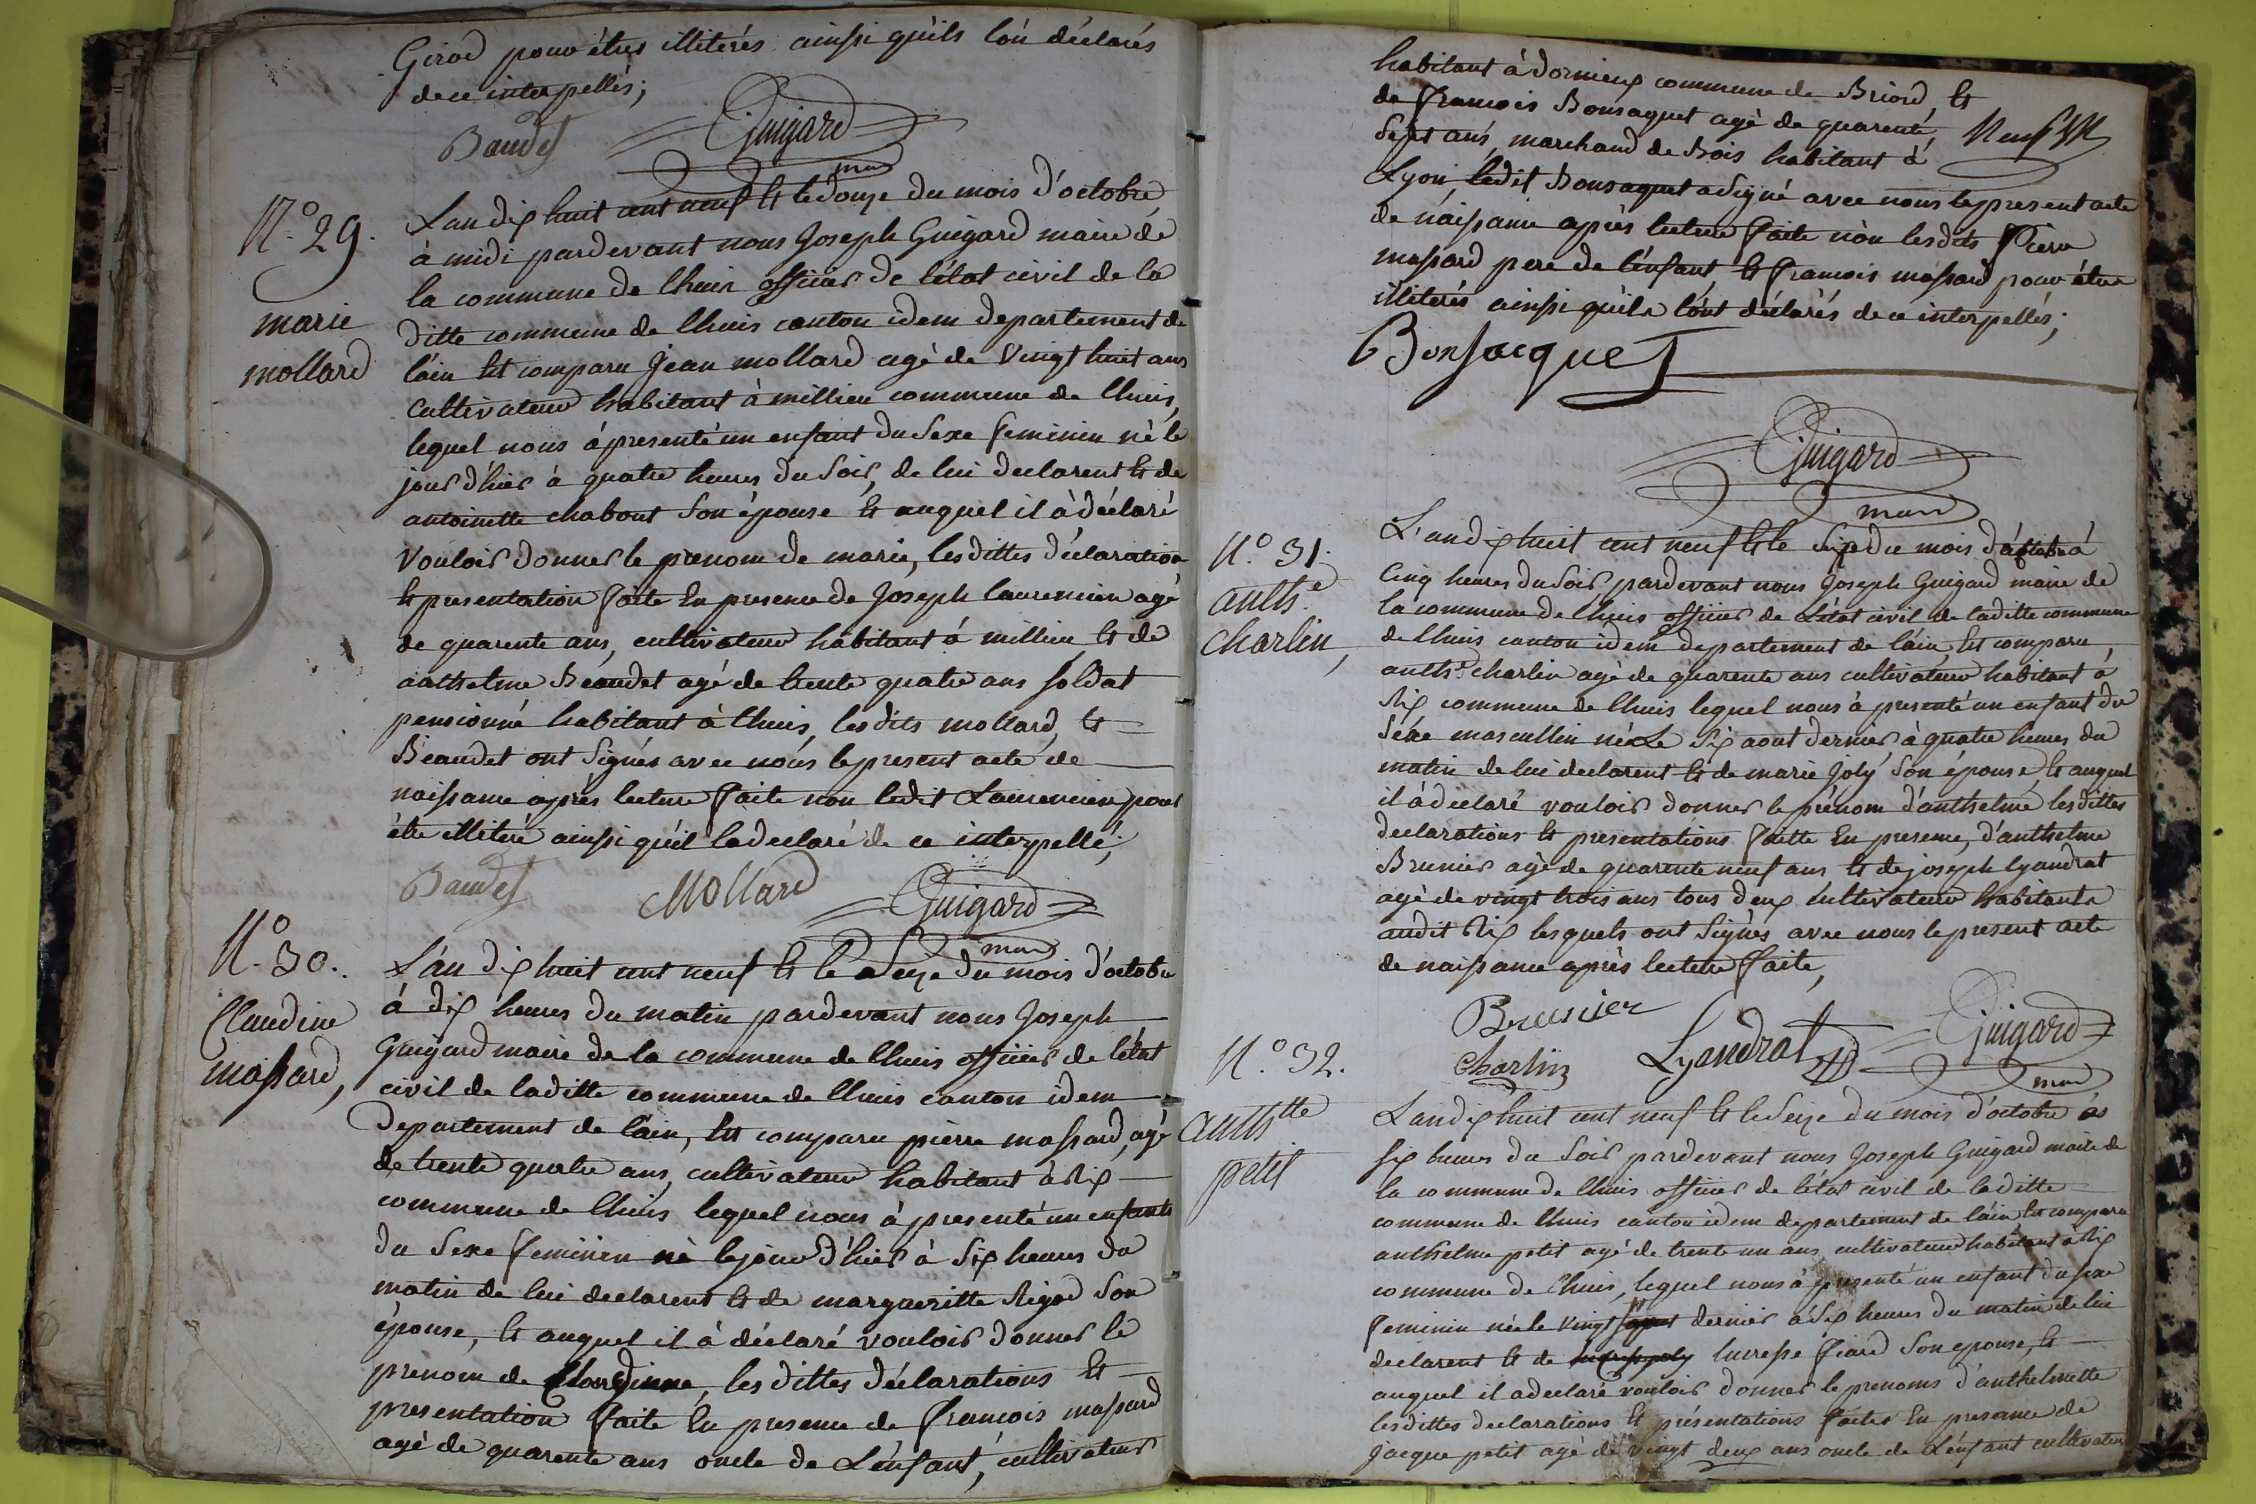 Girod pour étres illiterés ainsi quils lón déclarés
de ce interpellés;
Baudet
Guigard
mair
N.o 29.
marie
mollard
Lan dix huit cent neuf et le douze du mois d'octobre
à midi pardevant nous Joseph Guigard maire de
la commune de lhuis officier de létat civil de la
ditte commune de lhuis canton idem departement de
láin est comparu jean mollard agé de vingt huit ans
cultivateur habitant à millieu commune de lhuis,
lequel nous à presenté un enfant du Sexe feminin né le
jour d'hier à quatre heures du Soir, de lui declarent et de
antoinette chabout Son épouse et auquel il à déclaré
vouloir donner le prenom de marie, les dittes déclaration
et presentation faite En presence de Joseph laurencien agé
de quarente ans, cultivateur habitant à millieu, et de
anthelme Béaudet agé de trente quatre ans soldat
pensionné habitant à lhuis, les dits mollard, et
Béaudet ont Signés avec nous le present acte de
naissance après lecture faite non ledit Laurencien pour
étre illiteré ainsi quéil la declaré de ce interpellé;
Baudet
Mollard
Guigard
mair
N.o 30.
Claudine
massard,
Lán dix huit cent neuf et le Seize du mois d'octobre
à dix heures du matin pardevant nous Joseph
Guigard maire de la commune de lhuis officier de létat
civil de laditte commune de lhuis canton idem
Departement de láin, est comparu pierre massard, agé
de trente quatre ans, cultivateur habitant à Rix
commune de lhuis lequel nous à presenté un enfant
du Sexe feminin né le jour d'hier à Six heures du
matin de lui declarent et de margueritte Rigod Son
épouse, et auquel il à déclaré vouloir donner le
prenom de Claudinne, les dittes déclarations et
presentation faite En presence de francois massard
agé de quarente ans oncle de Lénfant, cultivateur
habitant à dornieux commune de Briord, et
de francois Bonsaquet agé de quarente
Sept ans, marchand de Bois habitant à
Lyon, ledit Bonsaquet a Signé avec nous le present acte
de naissance après lecture faite nón les dits Pierre
massard pere de lénfant, et francois massard pour étre
illiterés ainsi quéils lónt déclarés de ce interpellés;
Bonsacquet
Guigard
mair
N.o 31.
anth.e
charlin,
L'an dix huit cent neuf et le Seize du mois d'octobre à
Cinq heures du Soir pardevant nous Joseph Guigard maire de
la commune de lhuis officier de Létat civil de laditte commune
de lhuis canton idem departement de láin, est comparu,
anth.e charlin agé de quarente ans cultivateur habitant à
Rix commune de lhuis lequel nous à presenté un enfant du
Séxe mascullin né Le Six aout dernier à quatre heures du
matin de lui declarent et de marie Joly Son épouse, et auquel
il à declaré vouloir donner le prénom d'anthelme les dittes
declarations et presentations faitte En presence, d'anthelme
Brunier agé de quarente neuf ans et de joseph lyandrat
agé de vingt trois ans tous deux cultivateur habitants
audit Rix lesquels ont Signés avec nous le present acte
de naissance après lecture faite,
Brunier
Charlin
Lyandrat
Guigard
mair
N.o 32.
anthtte
petit
Lan dix huit cent neuf et le Seize du mois d'octobre à
six heures du Soir pardevant nous Joseph Guigard maire de
la commune de lhuis officier de létat civil de laditte
commune de lhuis canton idem departement de láin est comparu
anthelme petit agé de trente un ans, cultivateur habitant à Rix
commune de lhuis, lequel nous à presenté un enfant du sexe
feminin née le vingt dernier à Six heures du matin de lui
declarent et de lucresse fiard Son epouse, et
auquel il a declaré vouloir donner le prenoms d'anthelmette
les dittes declarations et présentations faites En presence de
Jacque petit agé de vingt deux ans oncle de Lénfant cultivateur